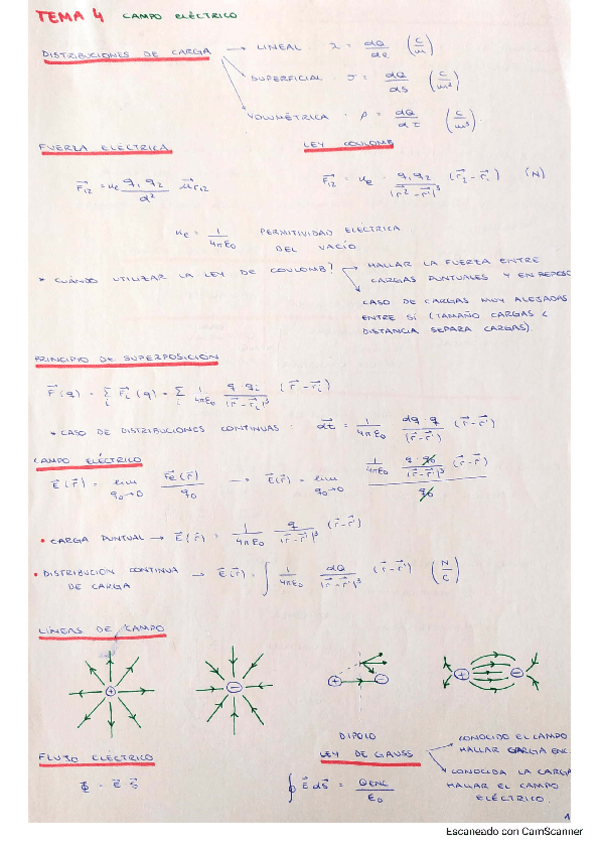 TEMA 4 CAMPO ELÉCTRICO
DISTRIBUCIONES DE CARGA → LINEAL · λ = dQ/dl (C/m)
SUPERFICIAL · σ = dQ/ds (C/m²)
VOLUMÉTRICA · ρ = dQ/dτ (C/m³)
FUERZA ELÉCTRICA
LEY COULOMB
F₁₂ = Ke q₁ q₂ / d² u r₁₂
F₁₂ = Ke · q₁ q₂ / |r₂ - r₁|³ (r₂ - r₁) (N)
Ke = 1/4πε₀ PERMITIVIDAD ELÉCTRICA
DEL VACÍO
CUÁNDO UTILIZAR LA LEY DE COULOMB? → HALLAR LA FUERZA ENTRE
CARGAS PUNTUALES Y EN REPOSO
CASO DE CARGAS MUY ALEJADAS
ENTRE SÍ (TAMAÑO CARGAS <
DISTANCIA SEPARA CARGAS).
PRINCIPIO DE SUPERPOSICION
F(q) = Σi Fi(q) = Σi 1/4πε₀ q qi / |r - ri|³ (r - ri)
• CASO DE DISTRIBUCIONES CONTINUAS : = 1/4πε₀ dq · q / |r - r'| (r - r')
CAMPO ELÉCTRICO
E(r) = lim q₀→0 Fe(r)/q₀ → E(r) = lim q₀→0 1/4πε₀ q · q₀ / |r - r'|³ (r - r') / q₀
• CARGA PUNTUAL → E(r) = 1/4πε₀ q / |r - r'|³ (r - r')
• DISTRIBUCIÓN CONTINUA → E(r) = ∫ 1/4πε₀ dQ / |r - r'|³ (r - r') (N/C)
DE CARGA
LINEAS DE CAMPO
+
-
+ -
+ -
DIPOLO
FLUJO ELÉCTRICO
Φ = E S
LEY DE GAUSS
∮ E dS = QENC/ε₀
CONOCIDO EL CAMPO
HALLAR CARGA ENC
CONOCIDA LA CARGA
HALLAR EL CAMPO
ELÉCTRICO.
1
Escaneado con CamScanner